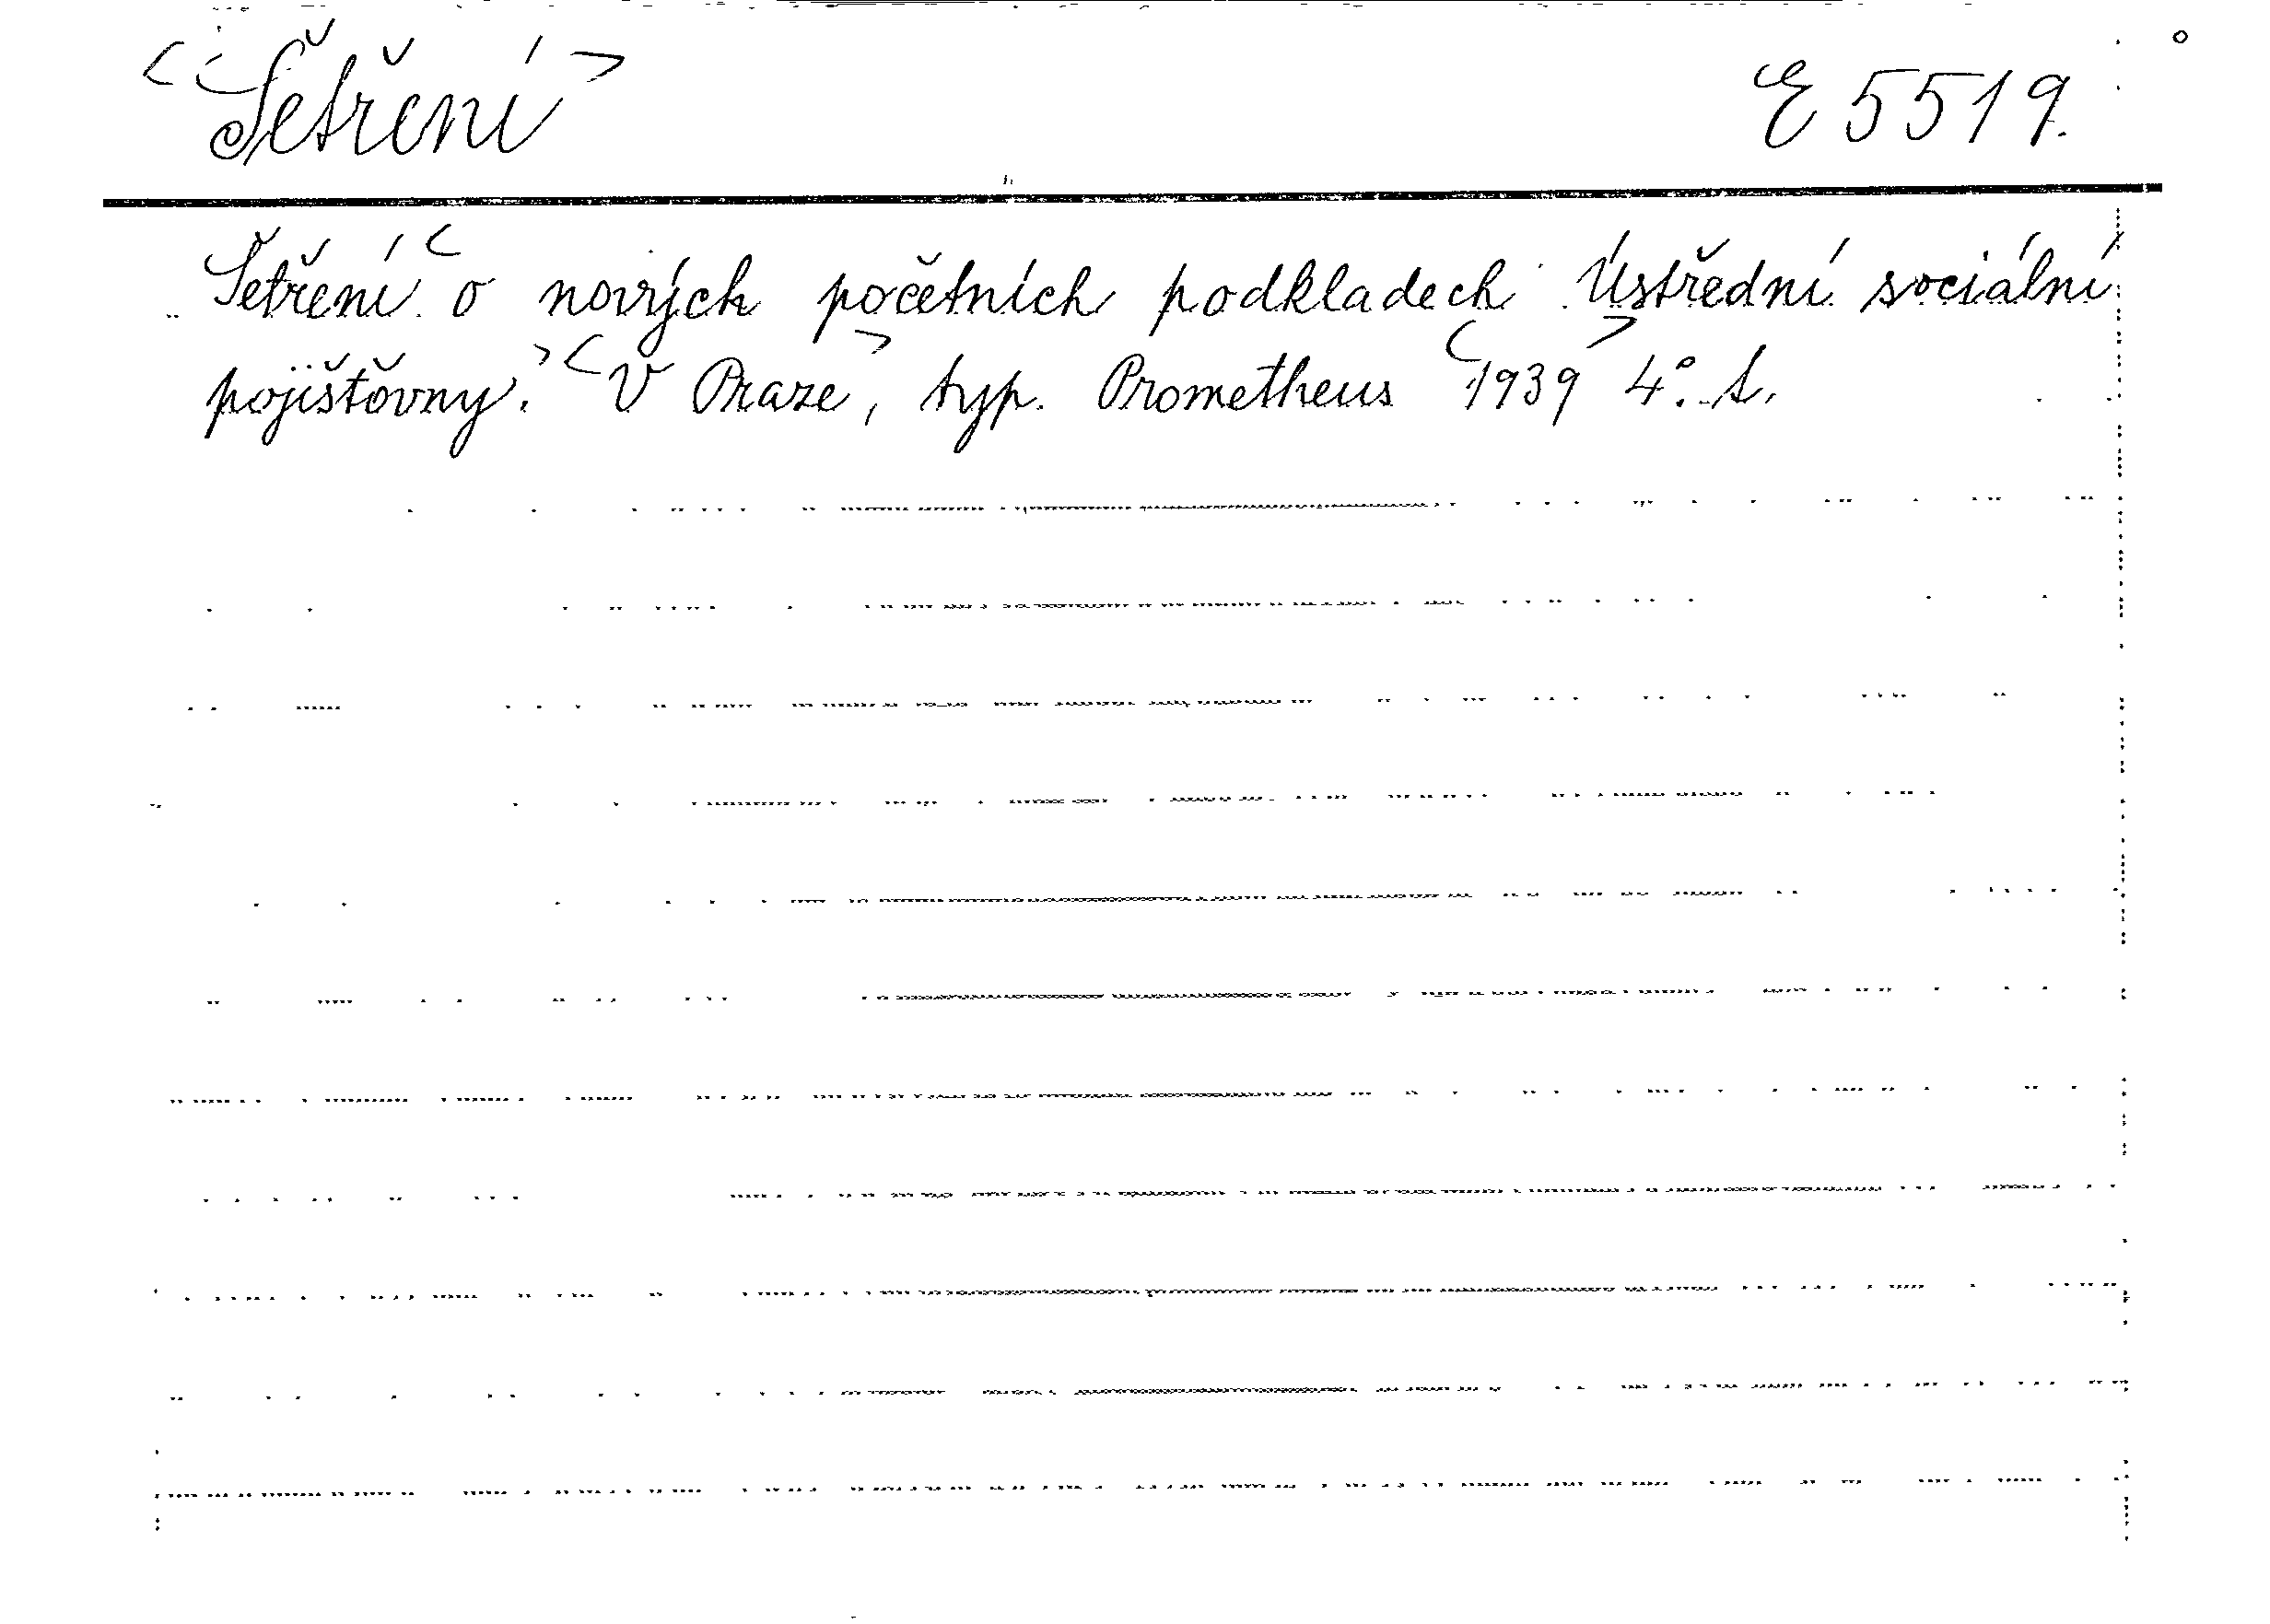 <Šetření> E 5519.
Šetření < o nových početních podkladech Ústřední sociální
pojišťovny. > < V Praze >, typ. Prometheus < 1939 > 4°. s.